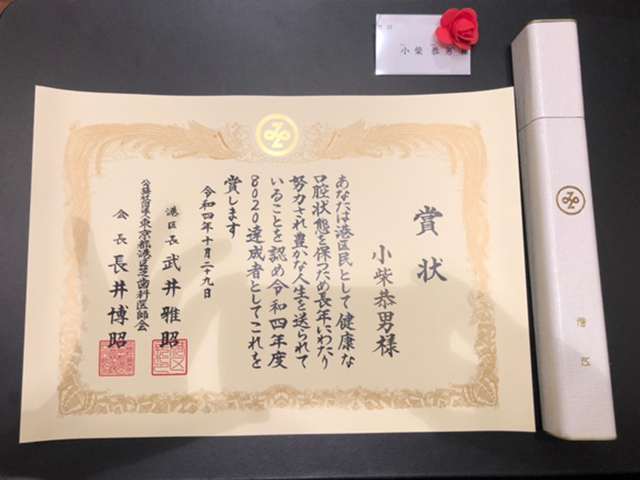 賞状
小柴恭男様
あなたは港区民として健康な
口腔状態を保つため長年にわたり
努力され豊かな人生を送られて
いることを認め令和四年度
8020達成者としてこれを
賞します
令和四年十月二十九日
港区長 武井雅昭
公益社団法人東京都港区芝歯科医師会
会長 長井博昭
小柴 恭男
港区